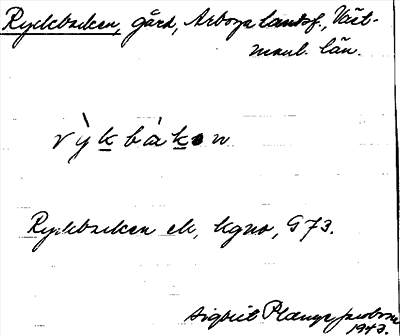 Ryckbacken, gård, Arboga landsf., Väst-
manl. län.
rỳk̲bàk̲ən
Ryckbacken ek, kgno, G 73.
Sigbrit Plænge Jacobson
1943.